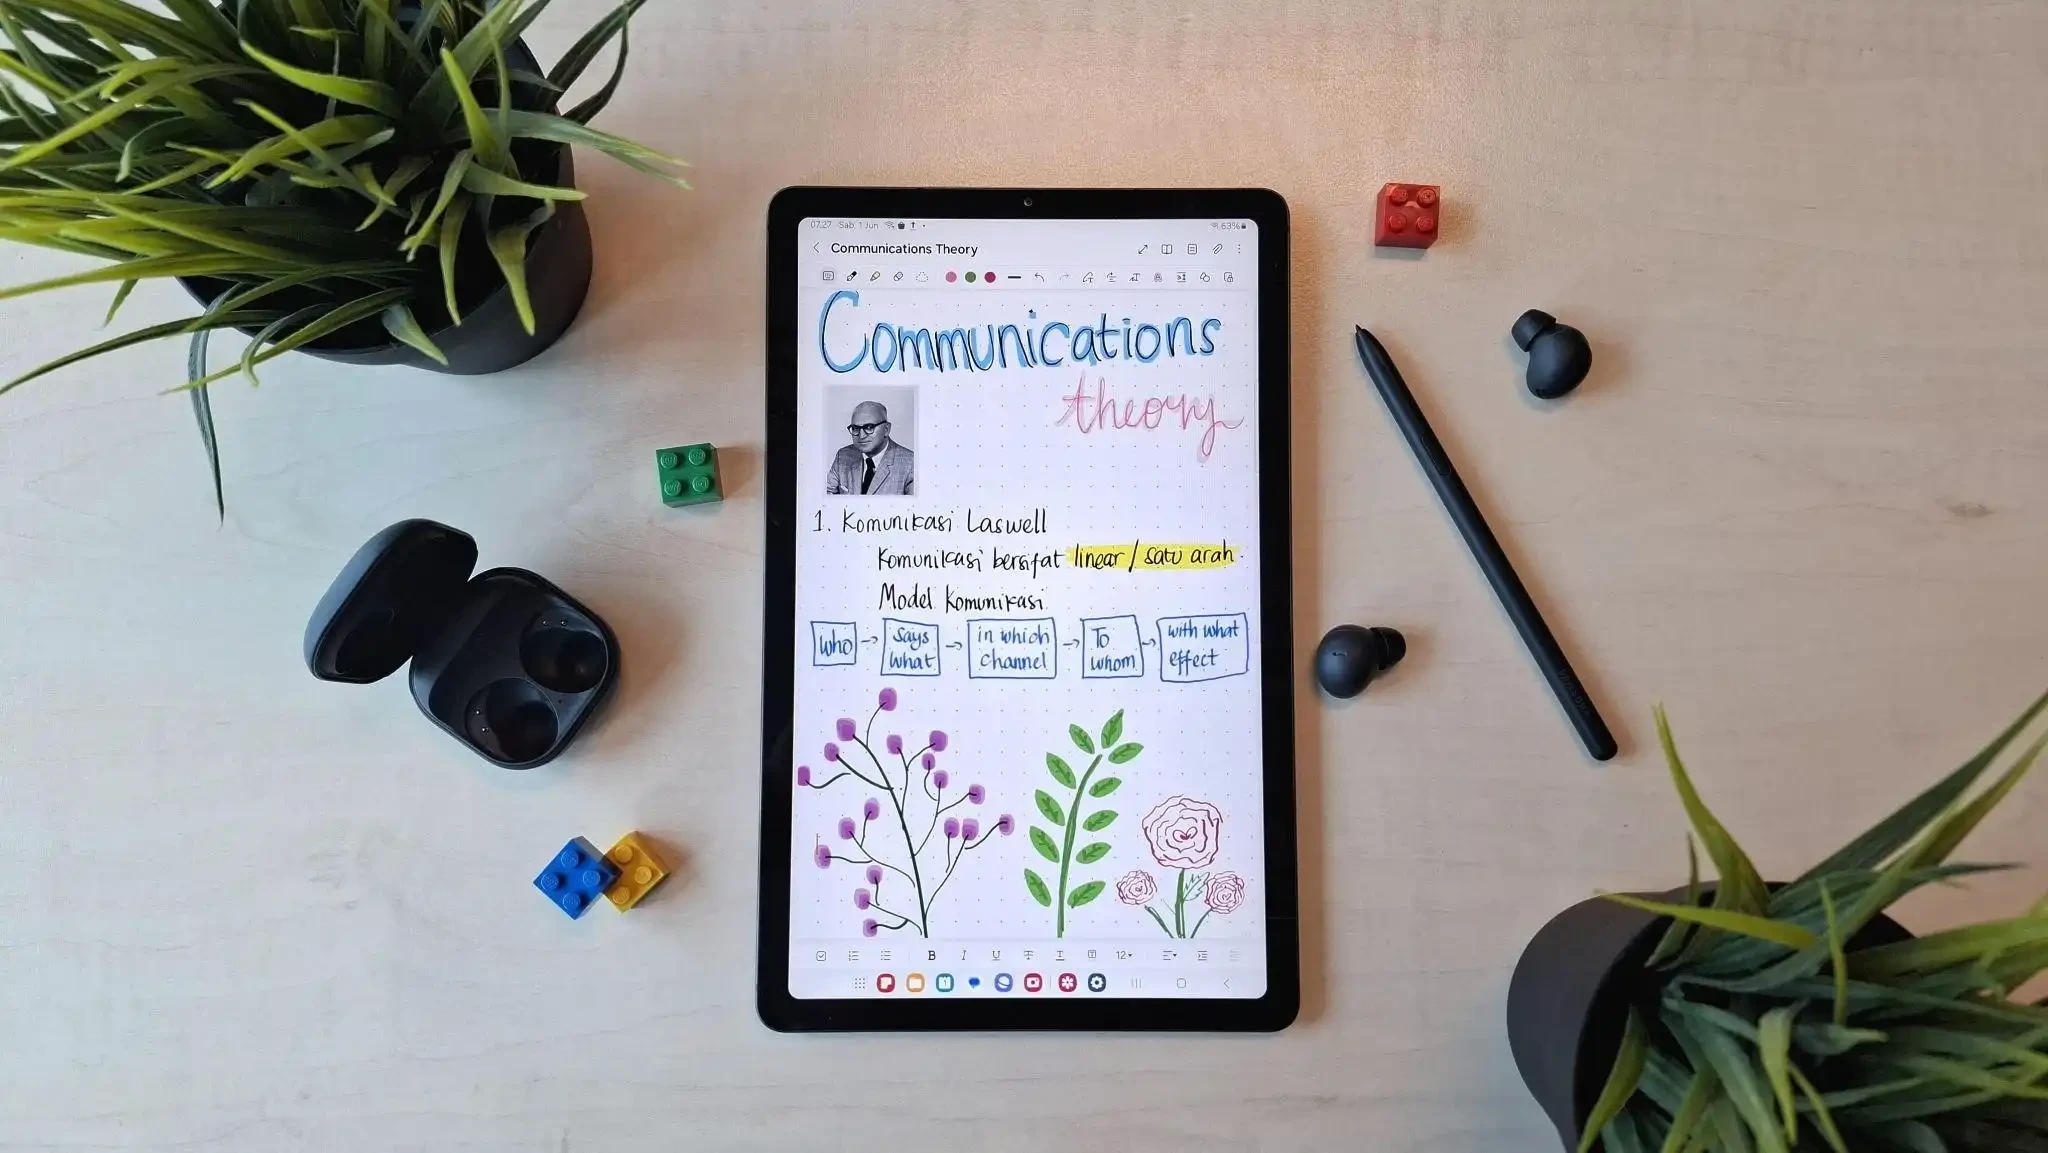 07.27 Sab, 1 Jun
63%
Communications Theory
Communications
theory
1. Komunikasi Laswell
Komunikasi bersifat linear / satu arah.
Model Komunikasi
Who → says what → in which channel → To whom → with what effect
B I U T T 12